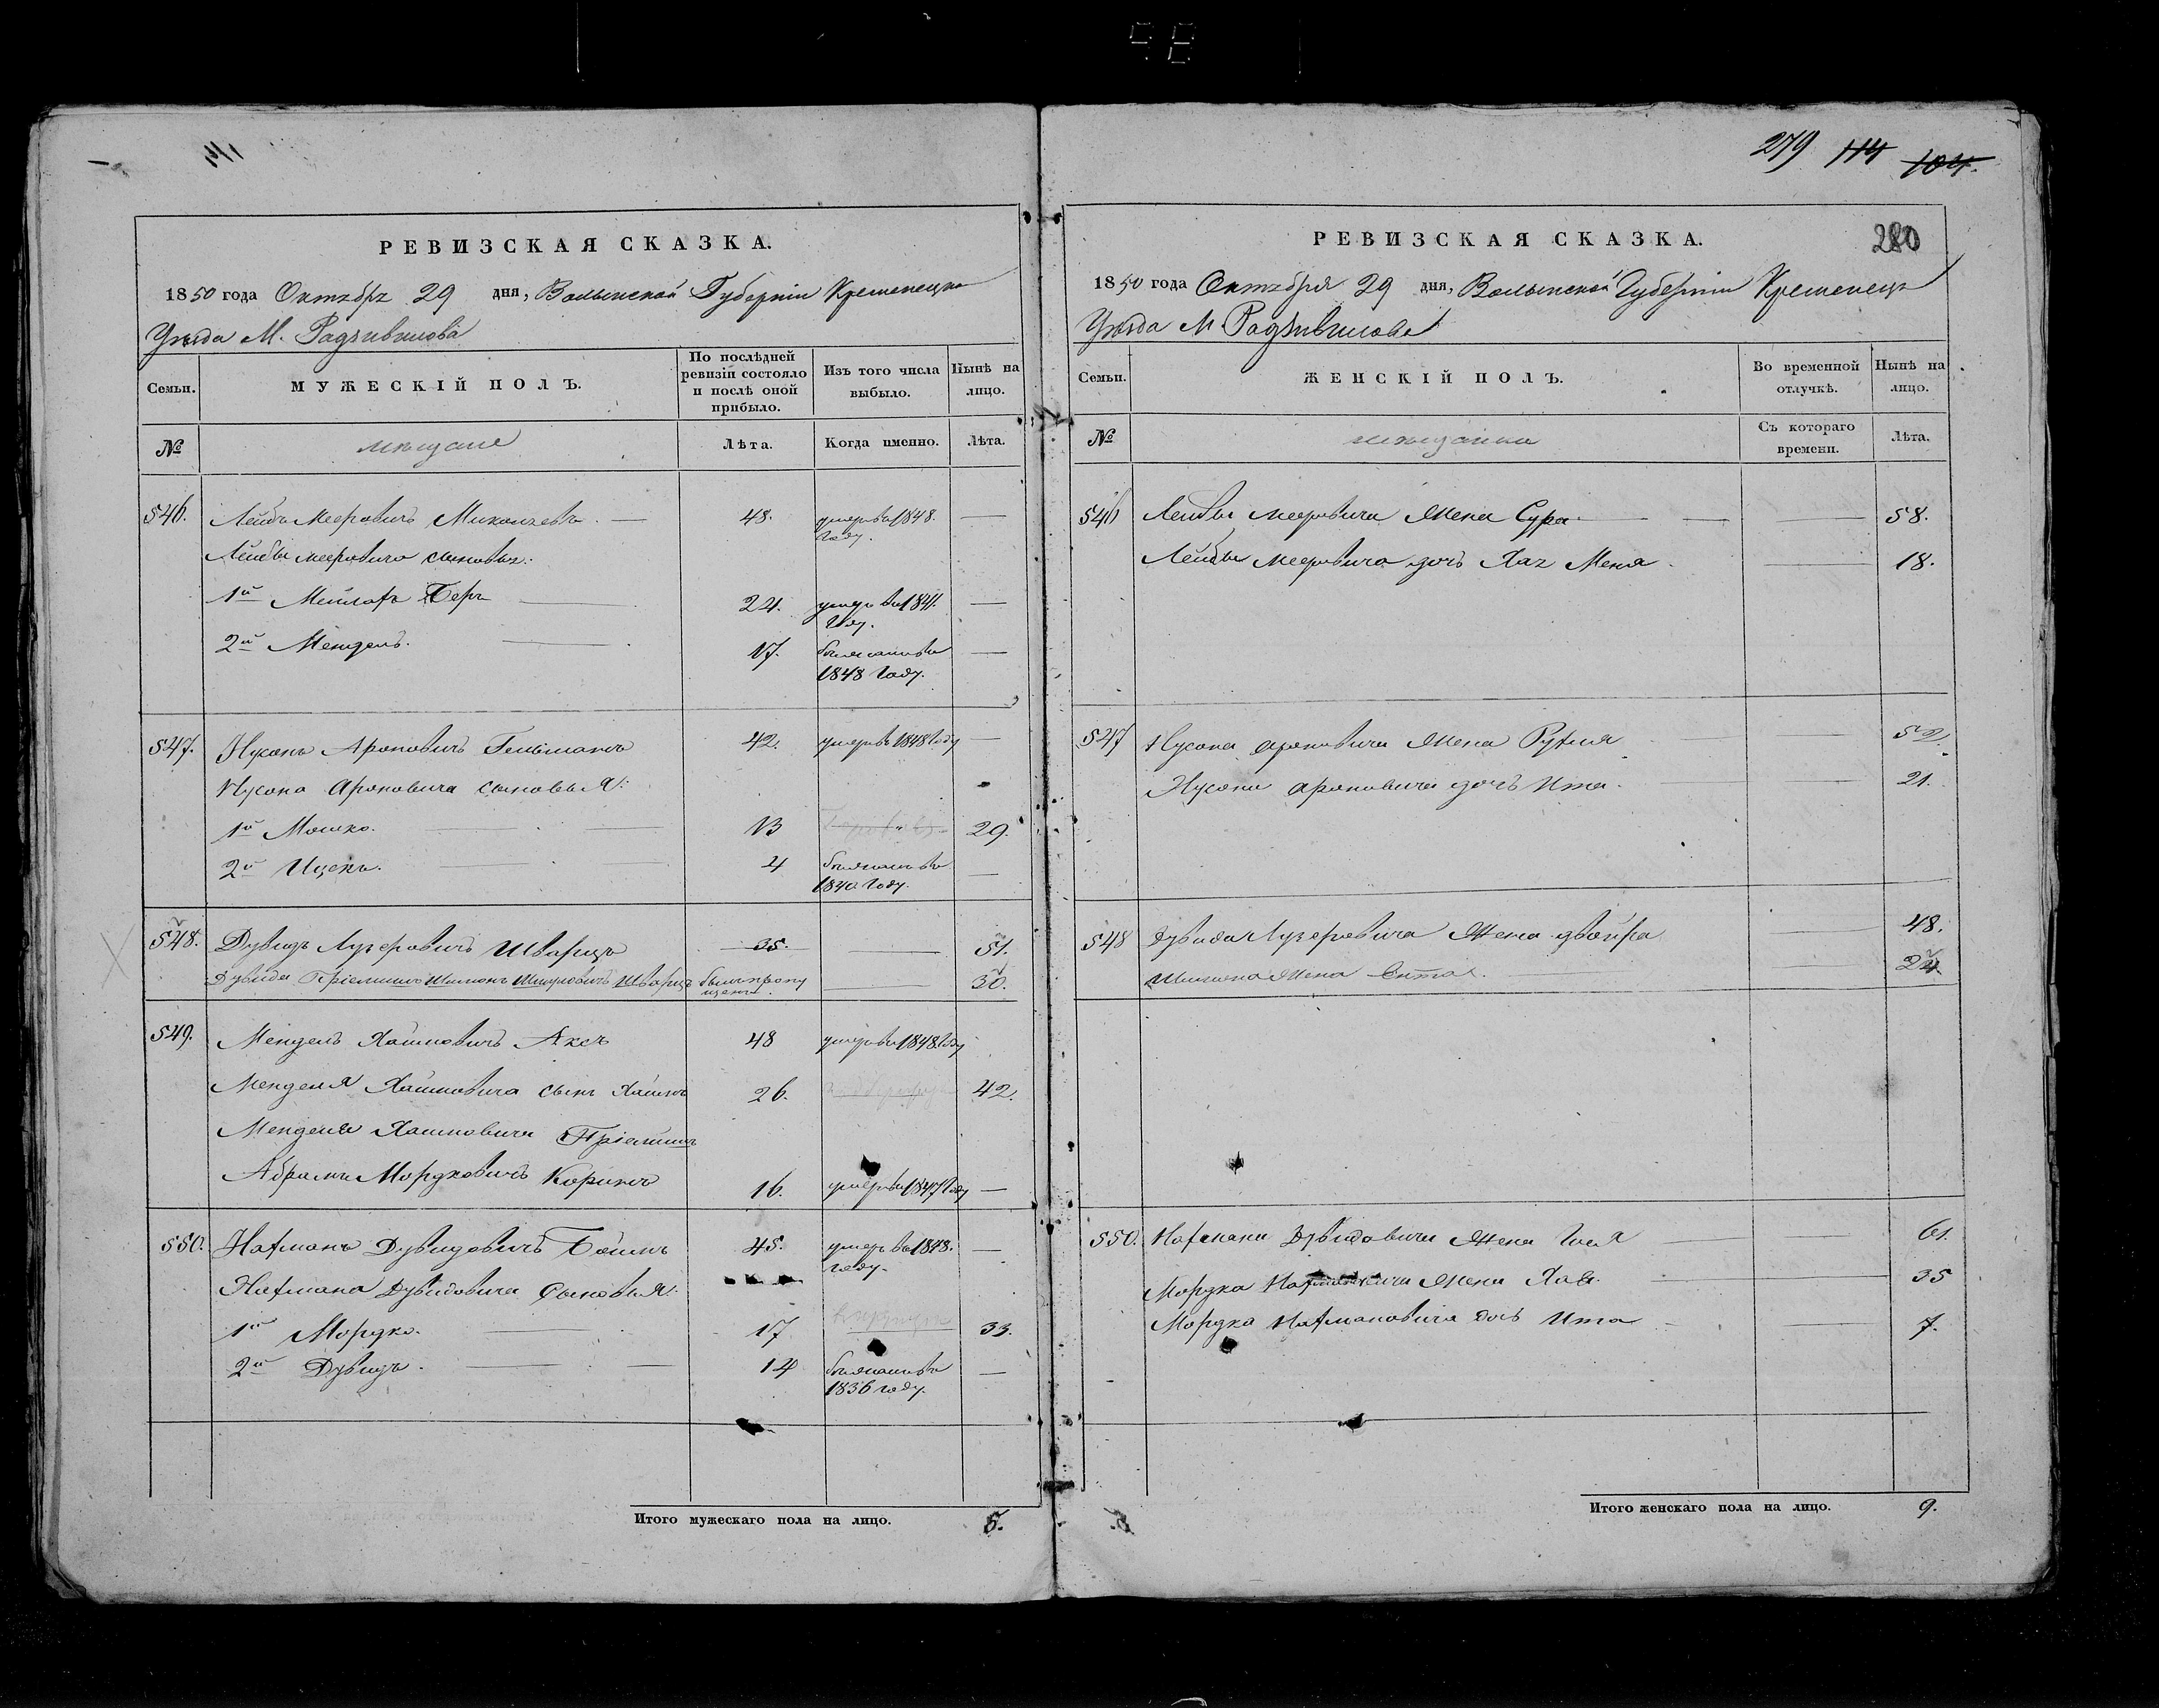 279 114 104.
РЕВИЗСКАЯ СКАЗКА.
1850 года Октября 29 дня, Волынской Губернiи Кременецка
Уѣзда М. Радзивилова
Семьи. МУЖЕСКІЙ ПОЛЪ. По послѣдней ревизіи состояло и послѣ оной прибыло. Изъ того числа выбыло. Нынѣ на лицо.
№ мещане Лѣта. Когда именно. Лѣта.
546. Лейба Мееровичъ 48. умеръ въ 1848. году.
Лейбы Мееровича сыновья:
1й Беръ 24. умеръ въ году.
2й Мендель. 17. 1848 году.
547. Нусонъ Ароновичъ Гельманъ 42. умеръ въ 1848 году
Нусона Ароновича сыновья:
1й Мошко. 13 29.
2й Ицекъ. 4 1840 году.
548. Дувидъ Лузеровичъ Шварцъ 35. 51.
Дувида Пріемышъ Шимонъ Шварцъ 30.
549. Мендель Хаимовичъ Аксъ 48 умеръ въ 1848 году
Менделя Хаимовича сынъ Хаимъ 26. 42.
Менделя Хаимовича Пріемышъ
Абрамъ Мордковичъ 16. умеръ въ 1847 году
550. Нахманъ Дувидовичъ 45. умеръ въ 1848. году.
Нахмана Дувидовича Сыновья:
1й Мордко. 17 33.
2й Дувидъ. 14 1836 году.
Итого мужескаго пола на лицо. 5.
РЕВИЗСКАЯ СКАЗКА. 280
1850 года Октября 29 дня, Волынской Губернiи Кременецк
Уѣзда М. Радзивилова
Семьи. ЖЕНСКІЙ ПОЛЪ. Во временной отлучкѣ. Нынѣ на лицо.
№ мещанки Съ котораго времени. Лѣта.
546 Лейбы Мееровича Жена Сура 58.
Лейбы Мееровича дочь Хая 18.
547 Нусона Ароновича Жена Рухля 52.
Нусона Ароновича дочь Ита. 21.
548 Дувида Лузеровича Жена Двойра 48.
Шимона Жена 24
550. Нахмана Дувидовича Жена 61.
Мордка Нахмановича Жена Хая. 35
Мордка Нахмановича дочь Ита 7.
Итого женскаго пола на лицо. 9.